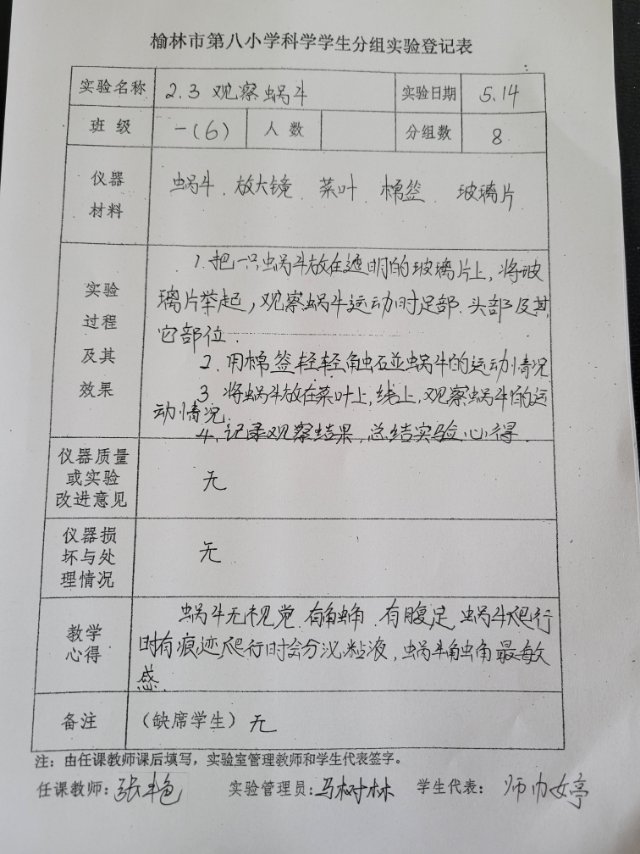 榆林市第八小学科学学生分组实验登记表
实验名称 2.3 观察蜗牛 实验日期 5.14
班级 一(6) 人数 分组数 8
仪器
材料
蜗牛 . 放大镜 . 菜叶 . 棉签 . 玻璃片
实验
过程
及其
效果
1. 把一只蜗牛放在透明的玻璃片上, 将玻
璃片举起, 观察蜗牛运动时足部. 头部及其
它部位.
2. 用棉签轻轻触碰蜗牛的运动情况
3. 将蜗牛放在菜叶上, 线上, 观察蜗牛的运
动情况.
4. 记录观察结果, 总结实验心得.
仪器质量
或实验
改进意见
无
仪器损
坏与处
理情况
无
教学
心得
蜗牛无视觉. 有触角. 有腹足 蜗牛爬行
时有痕迹爬行时会分泌粘液, 蜗牛触角最敏
感.
备注 (缺席学生) 无
注：由任课教师课后填写，实验室管理教师和学生代表签字。
任课教师: 张艳 实验管理员: 马树林 学生代表: 师巾婷